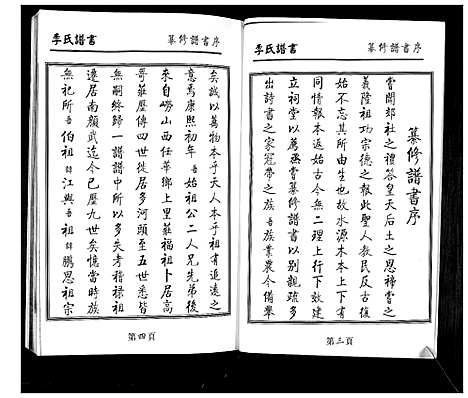 纂修譜書序
纂修譜書序
嘗聞郊社之禮答皇天后土之恩禘嘗之
義隆祖功宗德之報此聖人教民反古復
始不忘其所由生也故水源木本上下有
同情報本返始古今無二理上行下效建
立祠堂以薦烝嘗纂修譜書以別親疏多
出詩書之家冠帶之族吾族業農今備舉
季氏譜書
第三頁
纂修譜書序
矣誠以萬物本乎天人本乎祖有追遠之
意焉康熙初年吾始祖公二人兄先弟後
來自嶗山西任華鄉上里莊福祖卜居高
哥莊歷傳四世徙居多河頭至五世悉皆
無嗣終歸一譜譜中所以多失考稽祿祖
遷居南顏武迄今已歷九世矣憶當時族
無祀所吾伯祖諱江與吾祖諱鵬思祖宗
季氏譜書
第四頁